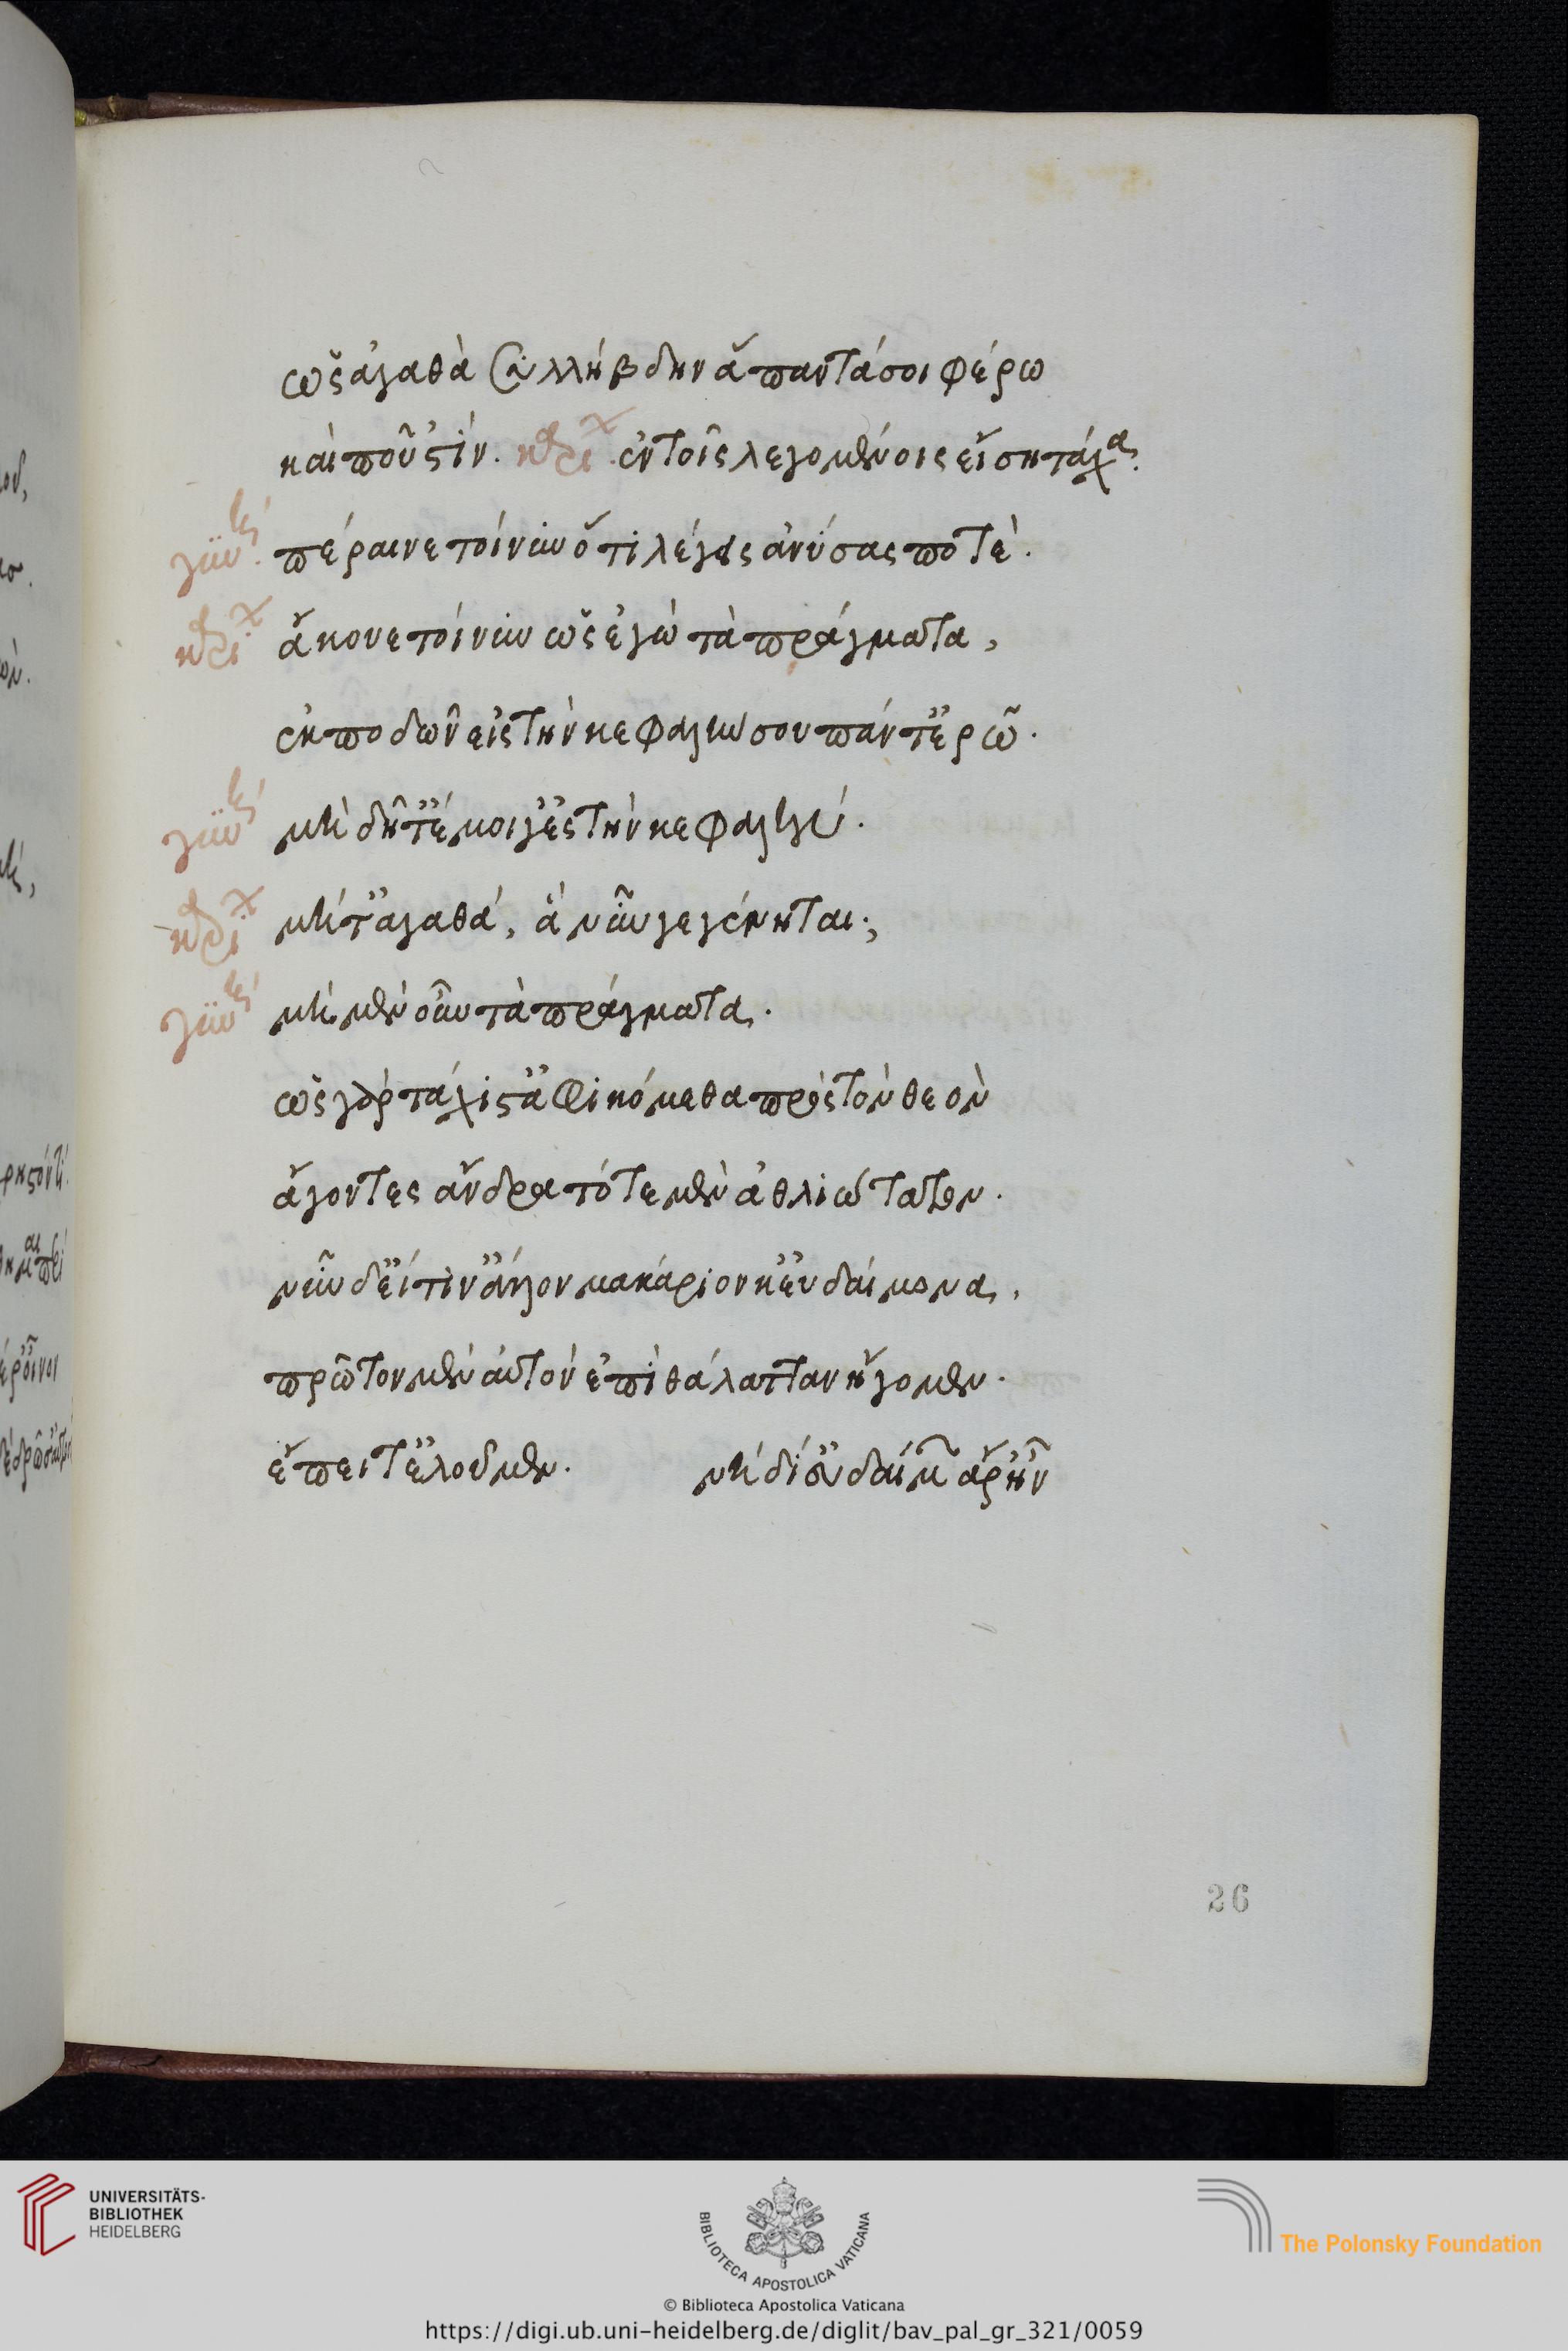 ὡς ἀγαθὰ συλλήβδην ἅπαντά σοι φέρω
καὶ ποῦ ’στίν. καρι. ἐν τοῖς λεγομένοις εἴση τάχα.
γυν. πέραινε τοίνυν ὅ τι λέγεις ἀνύσας ποτέ.
καρι ἄκουε τοίνυν ὡς ἐγὼ τὰ πράγματα,
ἐκ ποδῶν εἰς τὴν κεφαλήν σου πάντ’ ἐρῶ.
γυν μὴ δῆτ’ ἔμοιγ’ ἐς τὴν κεφαλήν.
καρι μὴ τ’ ἀγαθά, ἃ νῦν γεγένηται;
γυν μὴ μὲν οὖν τὰ πράγματα.
ὡς γὰρ τάχιστ’ ἀφικόμεθα πρὸς τὸν θεὸν
ἄγοντες ἄνδρα τότε μὲν ἀθλιώτατον.
νῦν δ’ εἴ τιν’ ἄλλον μακάριον κ’ εὐδαίμονα,
πρῶτον μὲν αὐτὸν ἐπὶ θάλατταν ἤγομεν.
ἔπειτ’ ἐλοῦμεν. νὴ δί’ εὐδαίμ ἄρ’ ἦν
26
UNIVERSITÄTS-
BIBLIOTHEK
HEIDELBERG
BIBLIOTECA APOSTOLICA VATICANA
The Polonsky Foundation
© Biblioteca Apostolica Vaticana
https://digi.ub.uni-heidelberg.de/diglit/bav_pal_gr_321/0059